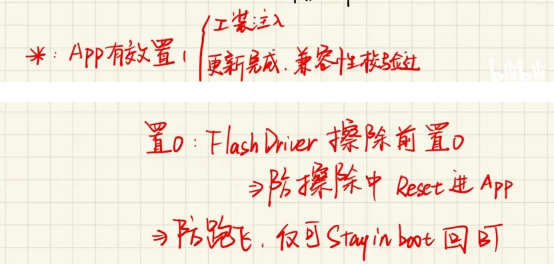 ※: App有效置1 { 工装注入
更新完成. 兼容性校验过
bilibili
置0: Flash Driver 擦除前置0
⇒防擦除中 Reset 进 App
⇒防跑飞. 仅可 Stay in boot 回 BT